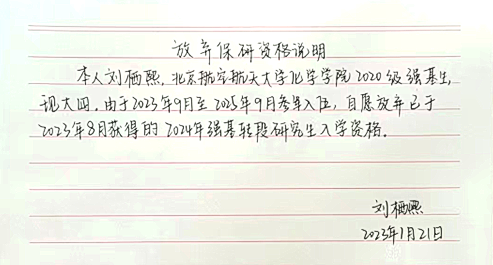 放弃保研资格说明
本人刘栖熙,北京航空航天大学化学学院2020级强基生,
现大四,由于2023年9月至2025年9月参军入伍,自愿放弃已于
2023年8月获得的2024年强基转段研究生入学资格。
刘栖熙
2023年1月21日